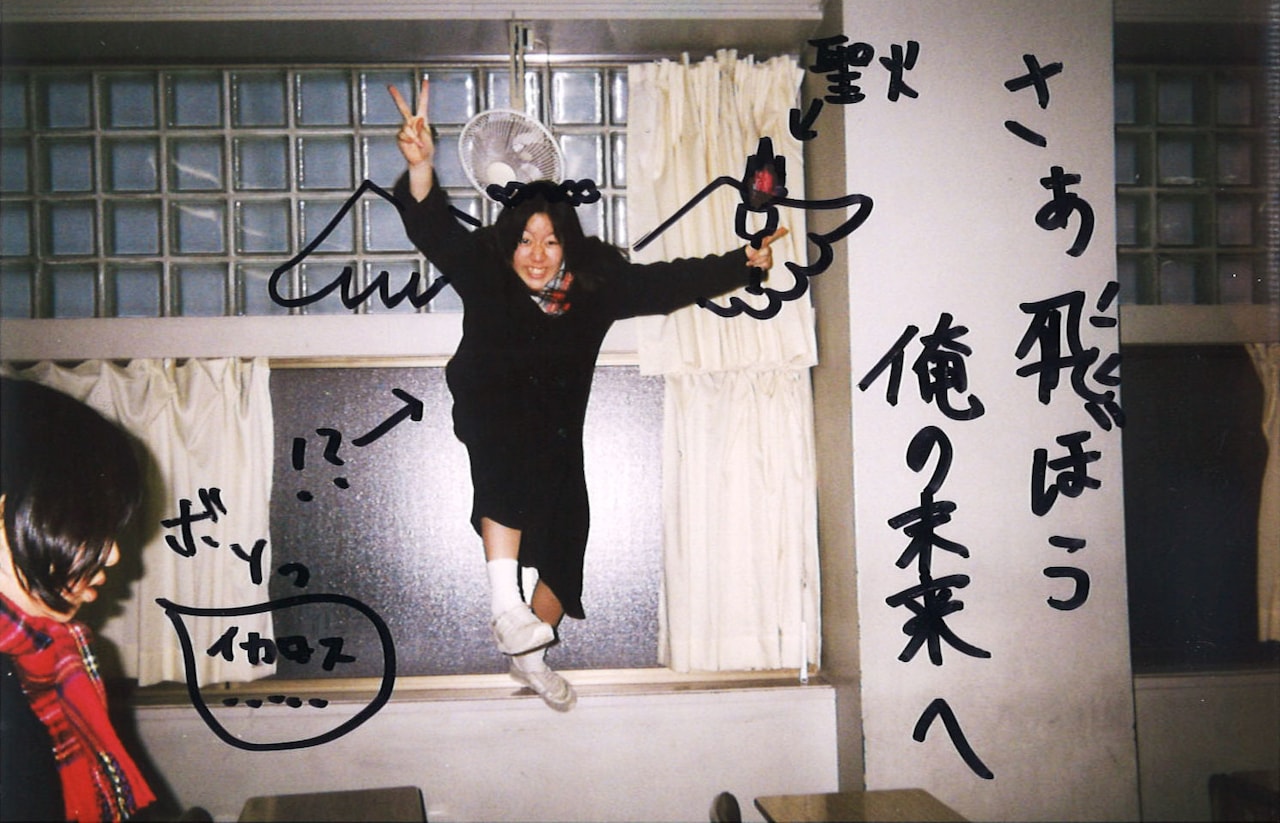 聖火
さあ飛ほう
俺の未来へ
!?
ボソっ
イカロス
.....